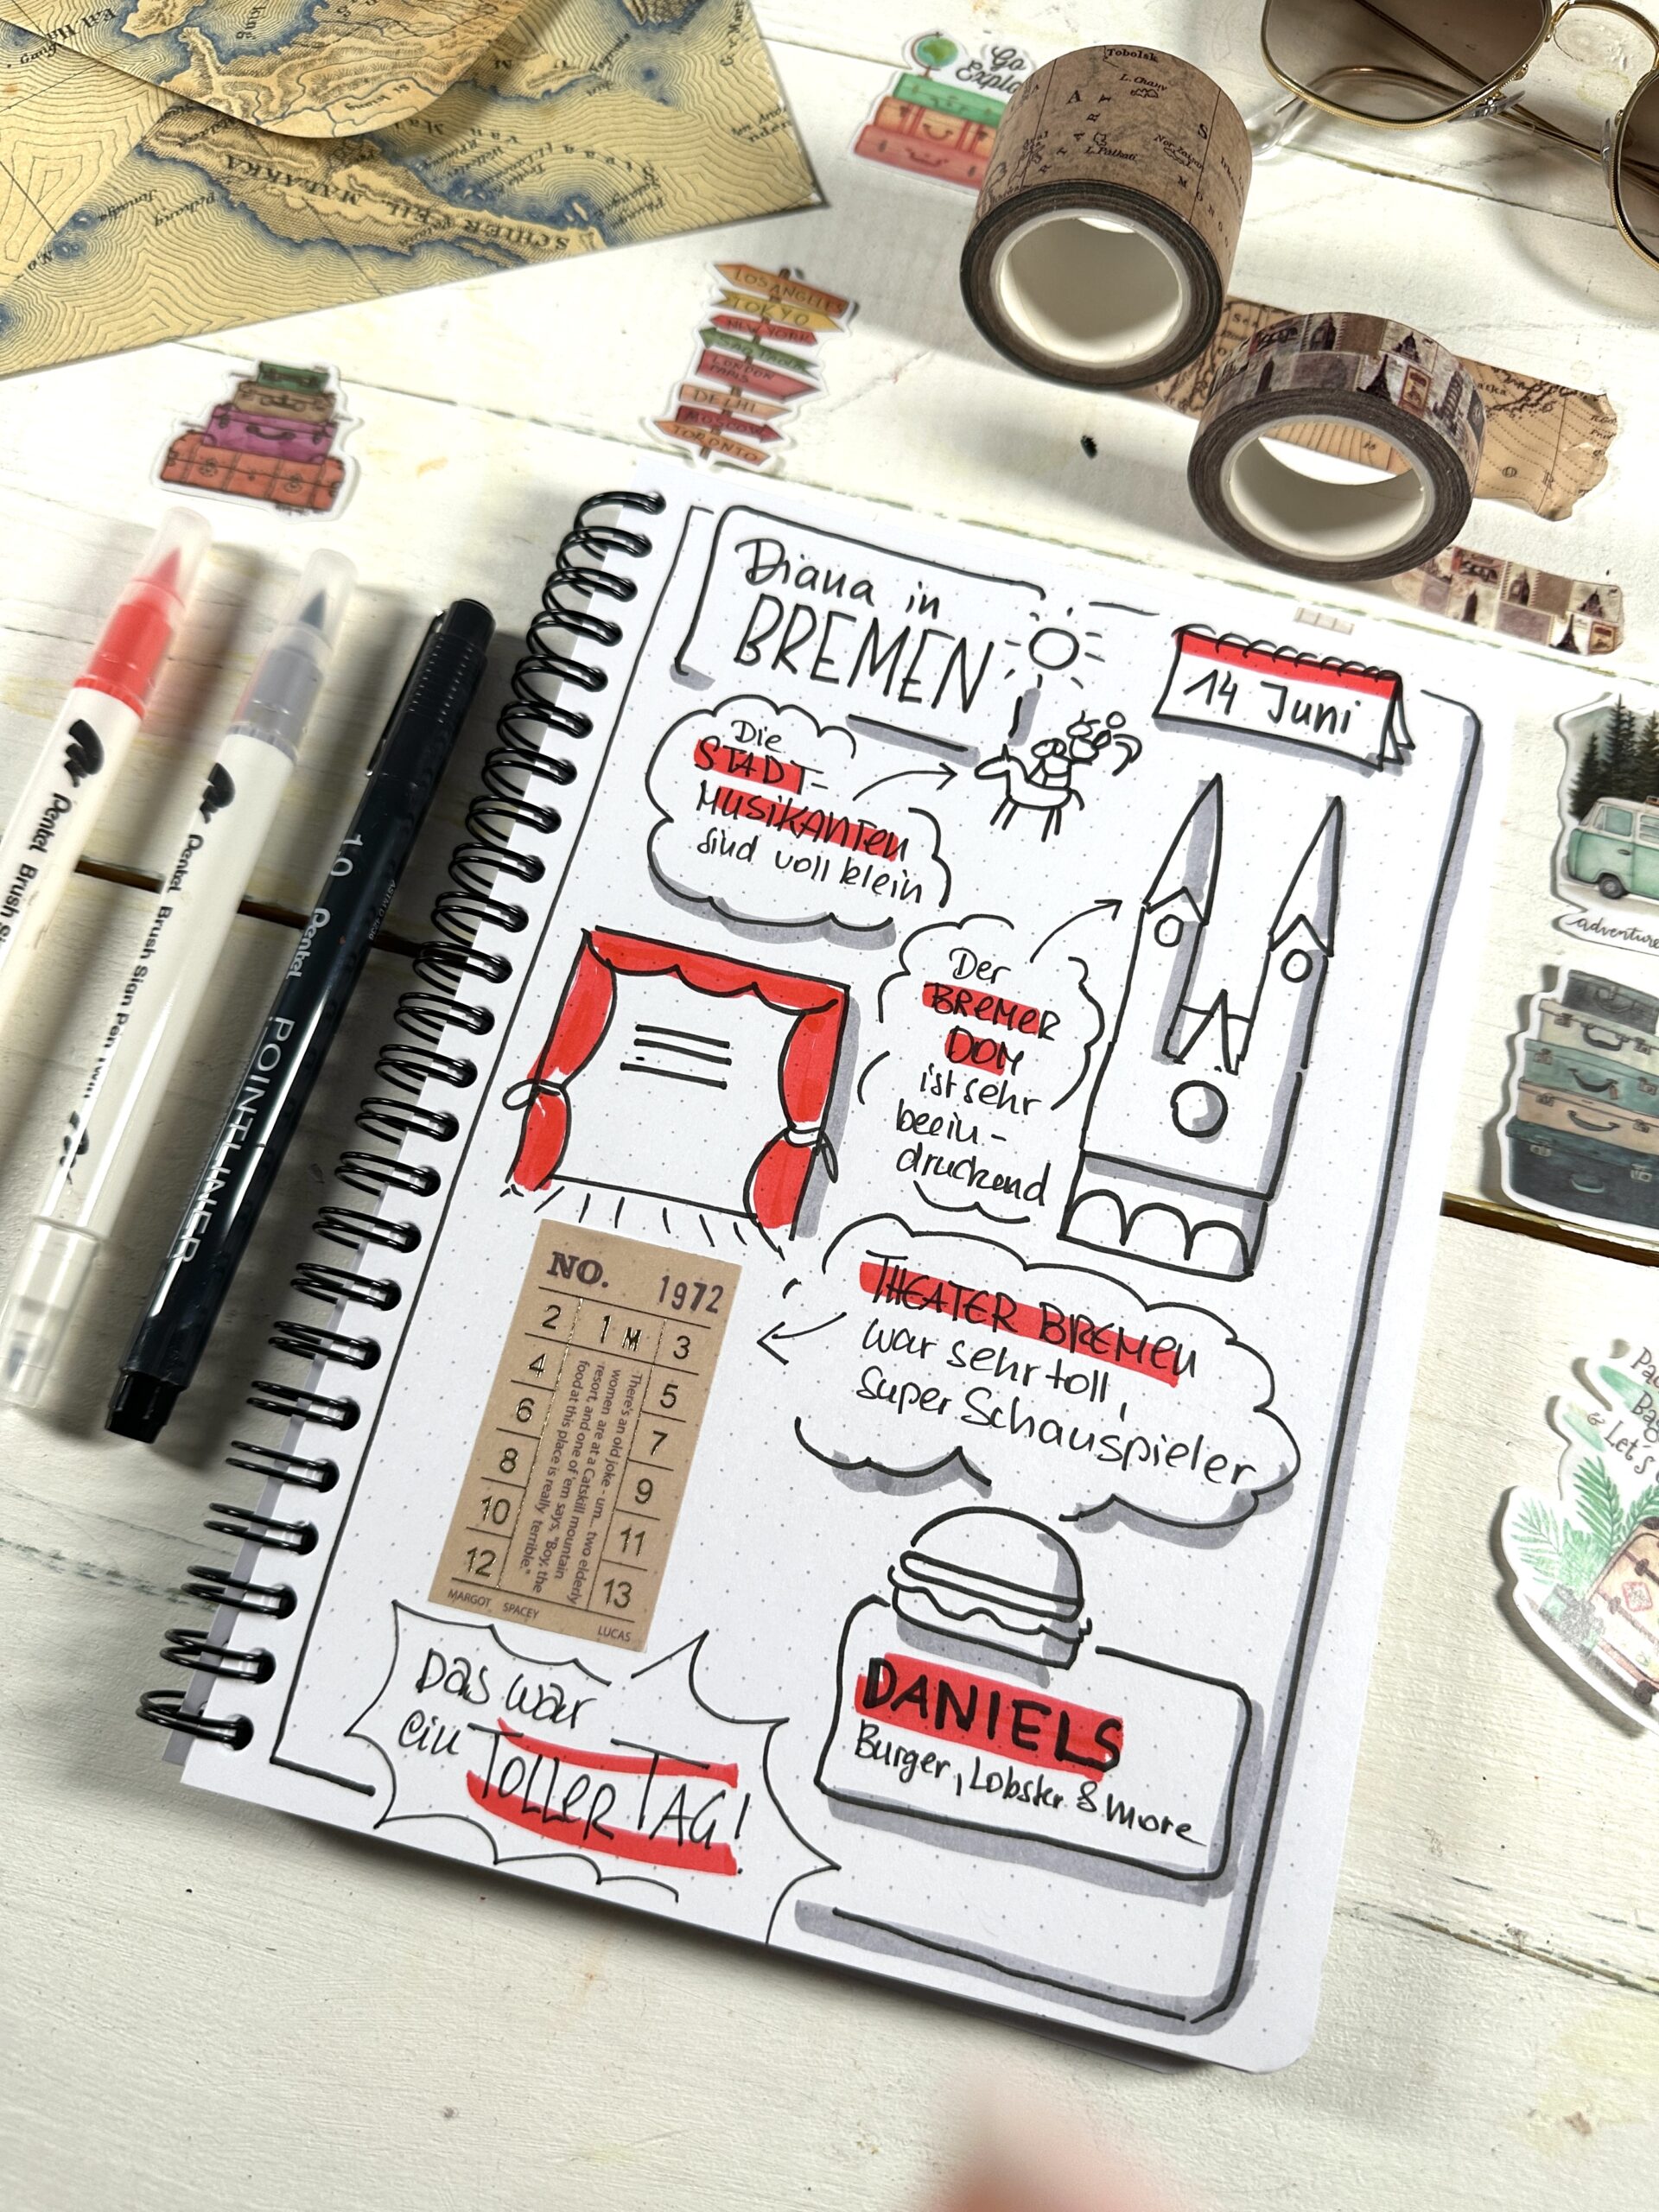 Go
LOS ANGELES
TOKYO
NEW YORK
SAO PAULO
LONDON
PARIS
DELHI
MOSCOW
TORONTO
Tobolsk
L. Chany
MALAKKA
Pentel Brush
Pentel Brush Sign Pen
1.0 Pentel POINTLINER
Diana in
BREMEN
14 Juni
Die
STADT-
MUSIKANTEN
sind voll klein
Der
BREMER
DOM
ist sehr
beein-
druckend
THEATER BREMEN
war sehr toll,
super Schauspieler
NO. 1972
2 1 M 3
4 5
6 7
8 9
10 11
12 13
There's an old joke - um... two elderly
women are at a Catskill mountain
resort, and one of 'em says, "Boy, the
food at this place is really terrible."
MARGOT SPACEY
LUCAS
DANIELS
Burger, Lobster & more
Das war
ein TOLLER TAG!
adventure
Let's